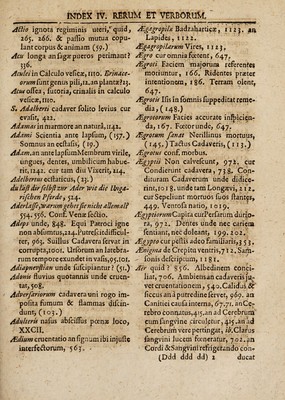 INDEX IV. RERUM ET VERBORUM.
Actio ignota regiminis uteri, quid,
265. 266. & passio mutua copu-
lant corpus & animam (59.)
Acu longa an sagæ pueros perimant?
336.
Aculei in Calculo vesicæ, 1110. Erinace-
orum sunt genus pili, 12. an planta? 13.
Acus ossea, sutoria, crinalis in calculo
vesicæ, 1110.
S. Adalberti cadaver solito levius cur
evasit, 421.
Adamas in marmore an natura, 1141.
Adami Scientia ante lapsum, (157.)
Somnus an ecstasis, (19.)
Adam, an ante lapsum Membrum virile,
ungues, dentes, umbilicum habue-
rit, 1141. cur tam diu vixerit, 214.
Adelbertus ecstaticus, (33.)
du läst dir selbst zur Ader wie die Unga-
rischen Pferde, 524.
554. 556. Conf. Venæ sectio.
Adeps unde, 848. Equi Patroci igne
non absumtus, 224. Putrescit difficul-
ter, 965. Suillus Cadavera servat in-
corrupta, 1001. Ustorum an lateribra-
rum tempore exundet in vasis, 05. 101.
Adiapneustian unde suscipiantur? (51.)
Adonis fluvius quotannis unde cruen-
tat, 508.
Adversariorum cadavera uni rogo im-
posita fumum & flammas discin-
dunt, (103.)
Adulteris nasus abscissus poenæ loco,
XXCII.
Ædium cruentatio an signum ibi injuste
interfectorum, 563.
Ægagropilæ Badzaharticæ, 1123. an
Lapides, 1122.
Ægagropilarum Vires, 1123,
Ægro cur omnia foetent, 647.
Ægroti Faciem majorum referentes
moriuntur, 166. Ridentes præter
intentionem, 186. Terram olent,
647.
Ægrotis Iis in somnis suppeditat reme-
dia, (148.)
Ægrotorum Facies accurate inspicien-
da, 167. Foetor unde, 647.
Ægrotum sanat Nerillinus mortuus,
(145.) Tactus Cadaveris, (113.)
Ægrotus conf. morbus.
Ægyptii Non calvescunt, 972. cur
Condierunt cadavera, 738. Con-
diturum Cadaverum unde didice-
rint, 1018. unde tam Longævi, 212.
cur Sepeliunt mortuos suos flantes,
449. Ventosa natio, 1019.
Ægyptiorum Capita cur Persarum durio-
ra, 972. Dentes unde nec cariem
sentiunt, nec doleant, 199. 202.
Ænigma de Crepitu ventris, 712. Sam-
sonis descriptum, 1181.
Aër quid? 856. Albedinem concil-
iat, 706. Ambiens an cadaveris ju-
vet cruentationem, 540. Calidus &
siccus an à putredine servet, 960. an
Canitiei causa interna, 67. 71. in Ce-
rebro connatus, 415. an ad Cerebrum
cum sanguine circuletur, 415. an ad
Cerebrum vere pertingat, ib. Clarus
sangvini lucem foenerat, 702. an
Cordi & Sangvini refrigerando con-
(Ddd ddd dd) 2 ducat